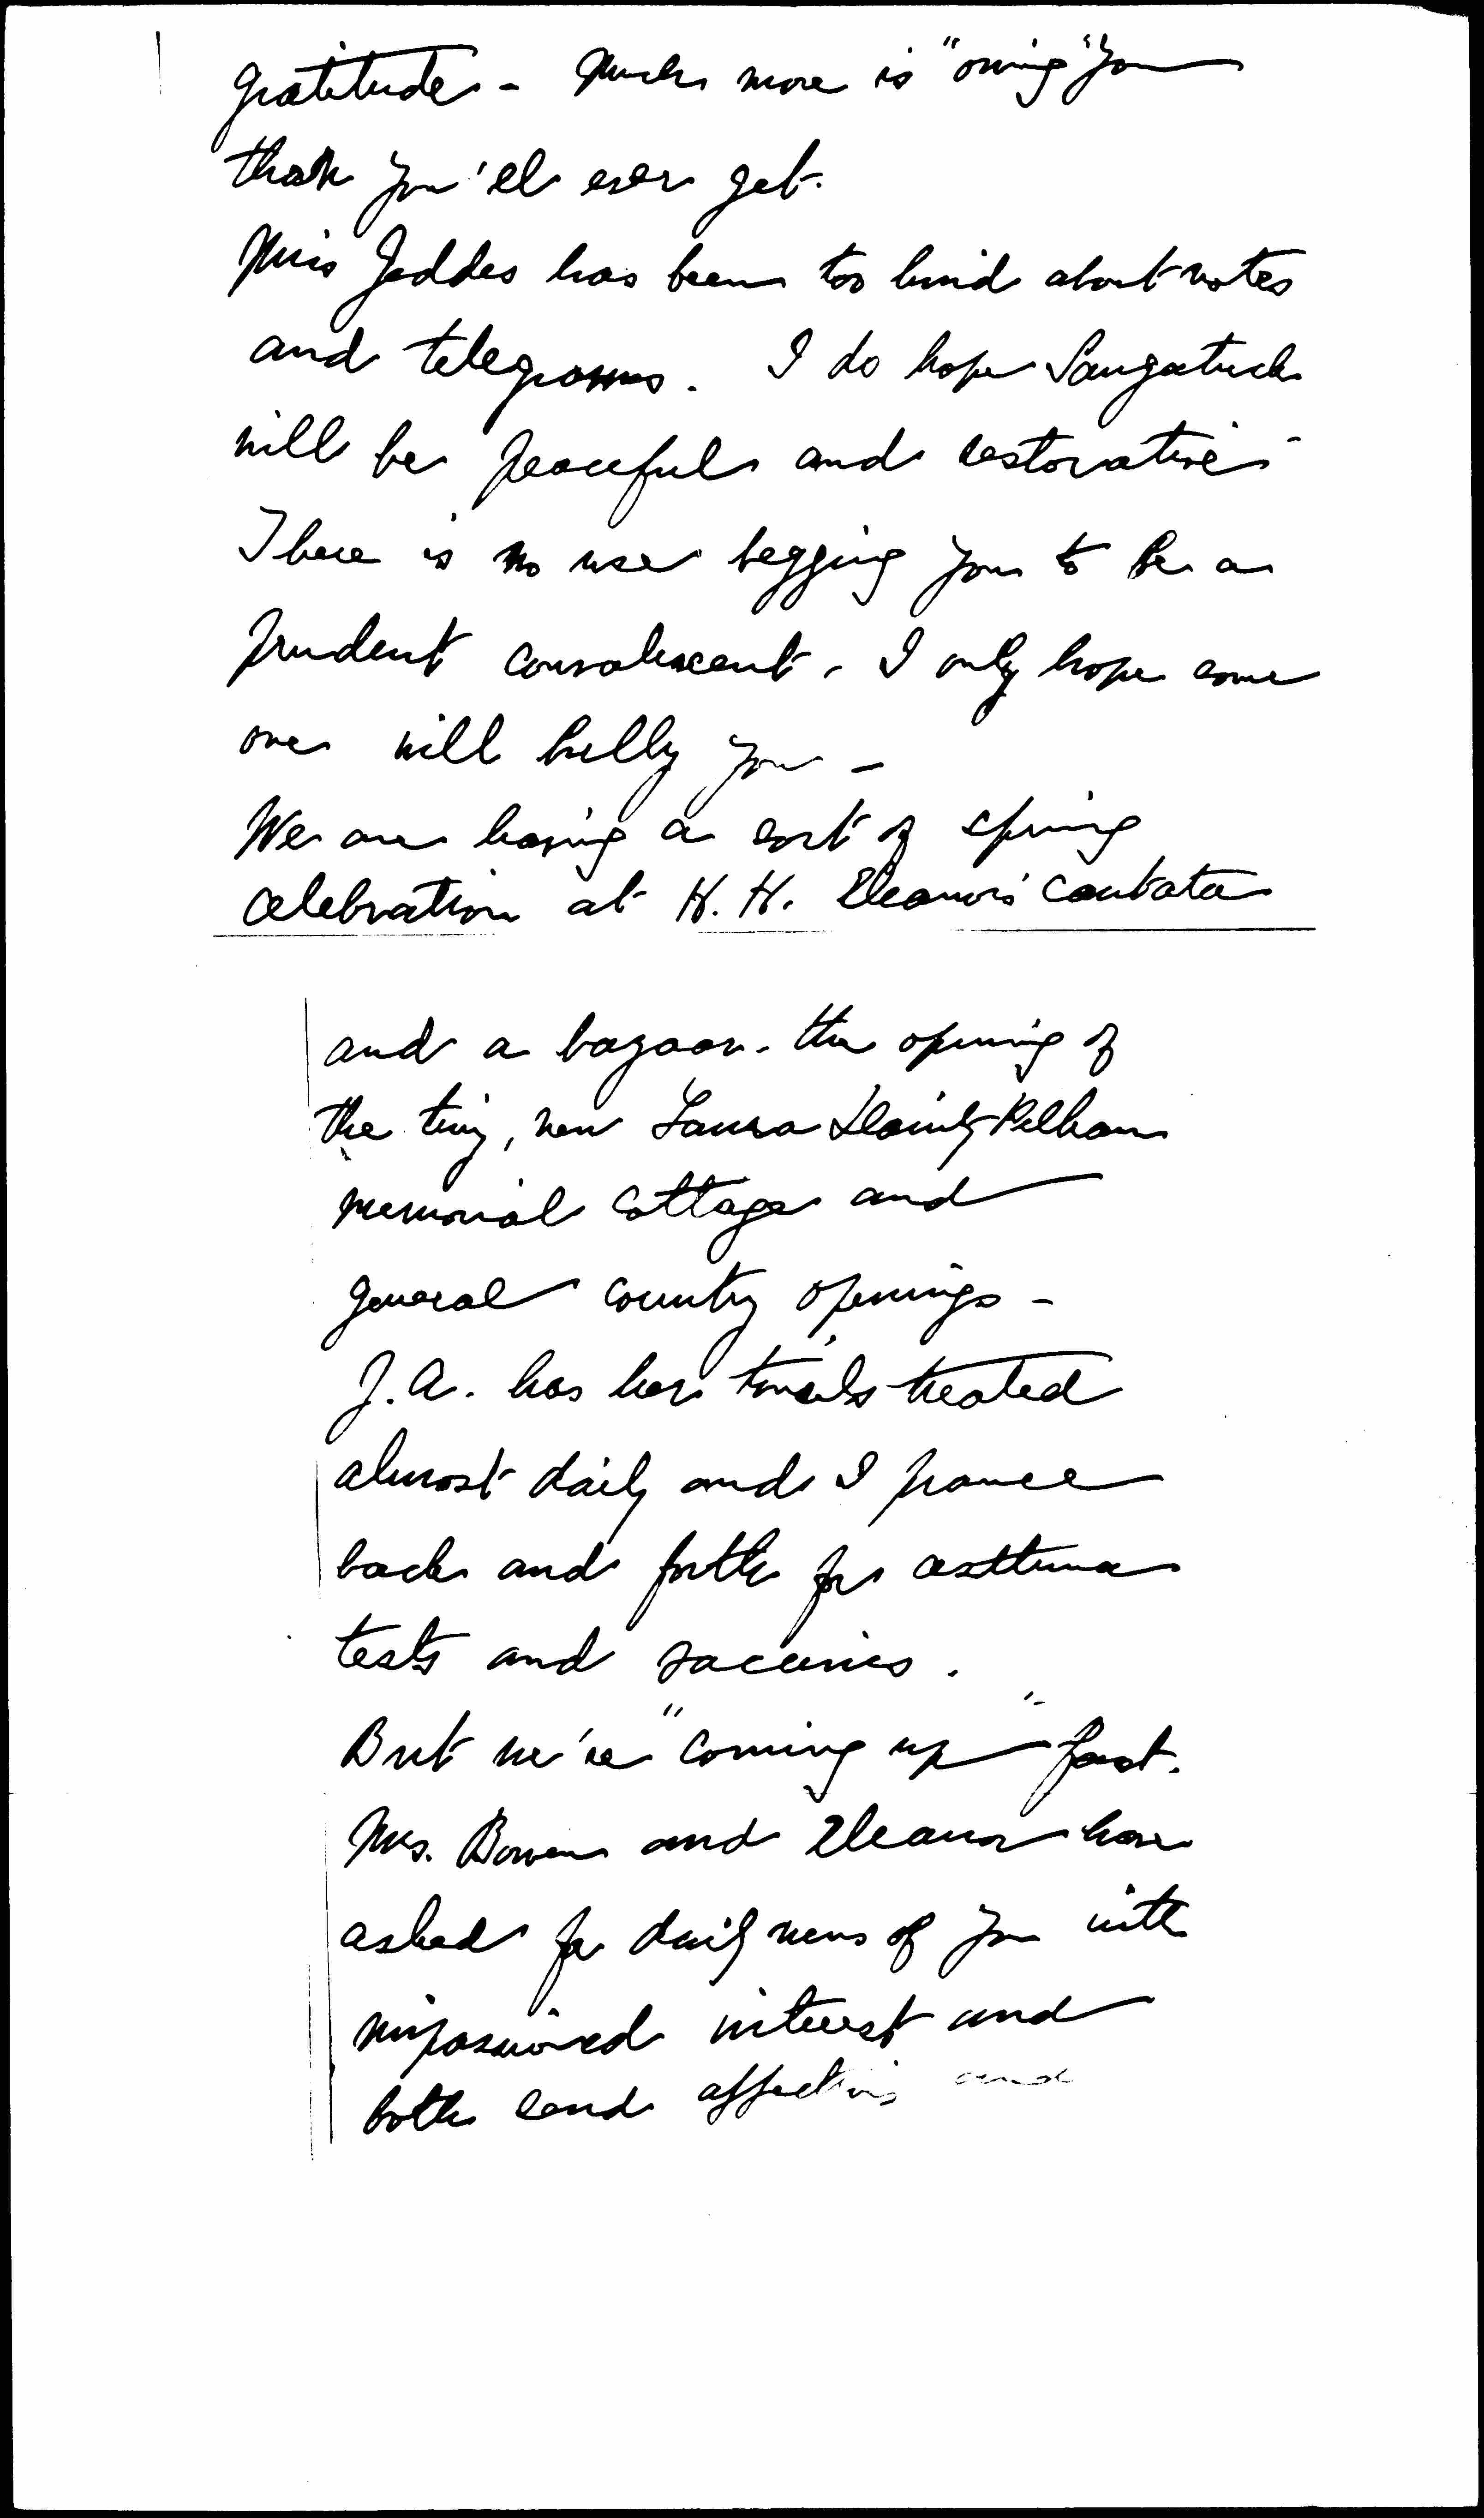 gratitude - Much more is "owing" you
than you'el ever get.
Miss Geddes has been too kind about notes
and telegrams. I do hope Saugatuck
will be peaceful and restorative -
There is no use begging you to be a
prudent convalescent. I only hope some
one will bully you -
We are having a sort of spring
celebration at H. H. Eleanor's cantata
and a bazaar. the opening of
the tiny, new Laura Dainty Pelham
memorial cottage and
general country openings -
J.A. has her tonsils treated
almost daily and I prance
back and forth for asthma
tests and vaccines.
But we're "coming up" fast.
Mrs. Bowen and Eleanor have
asked for daily news of you with
impassioned interest and
both send affection and